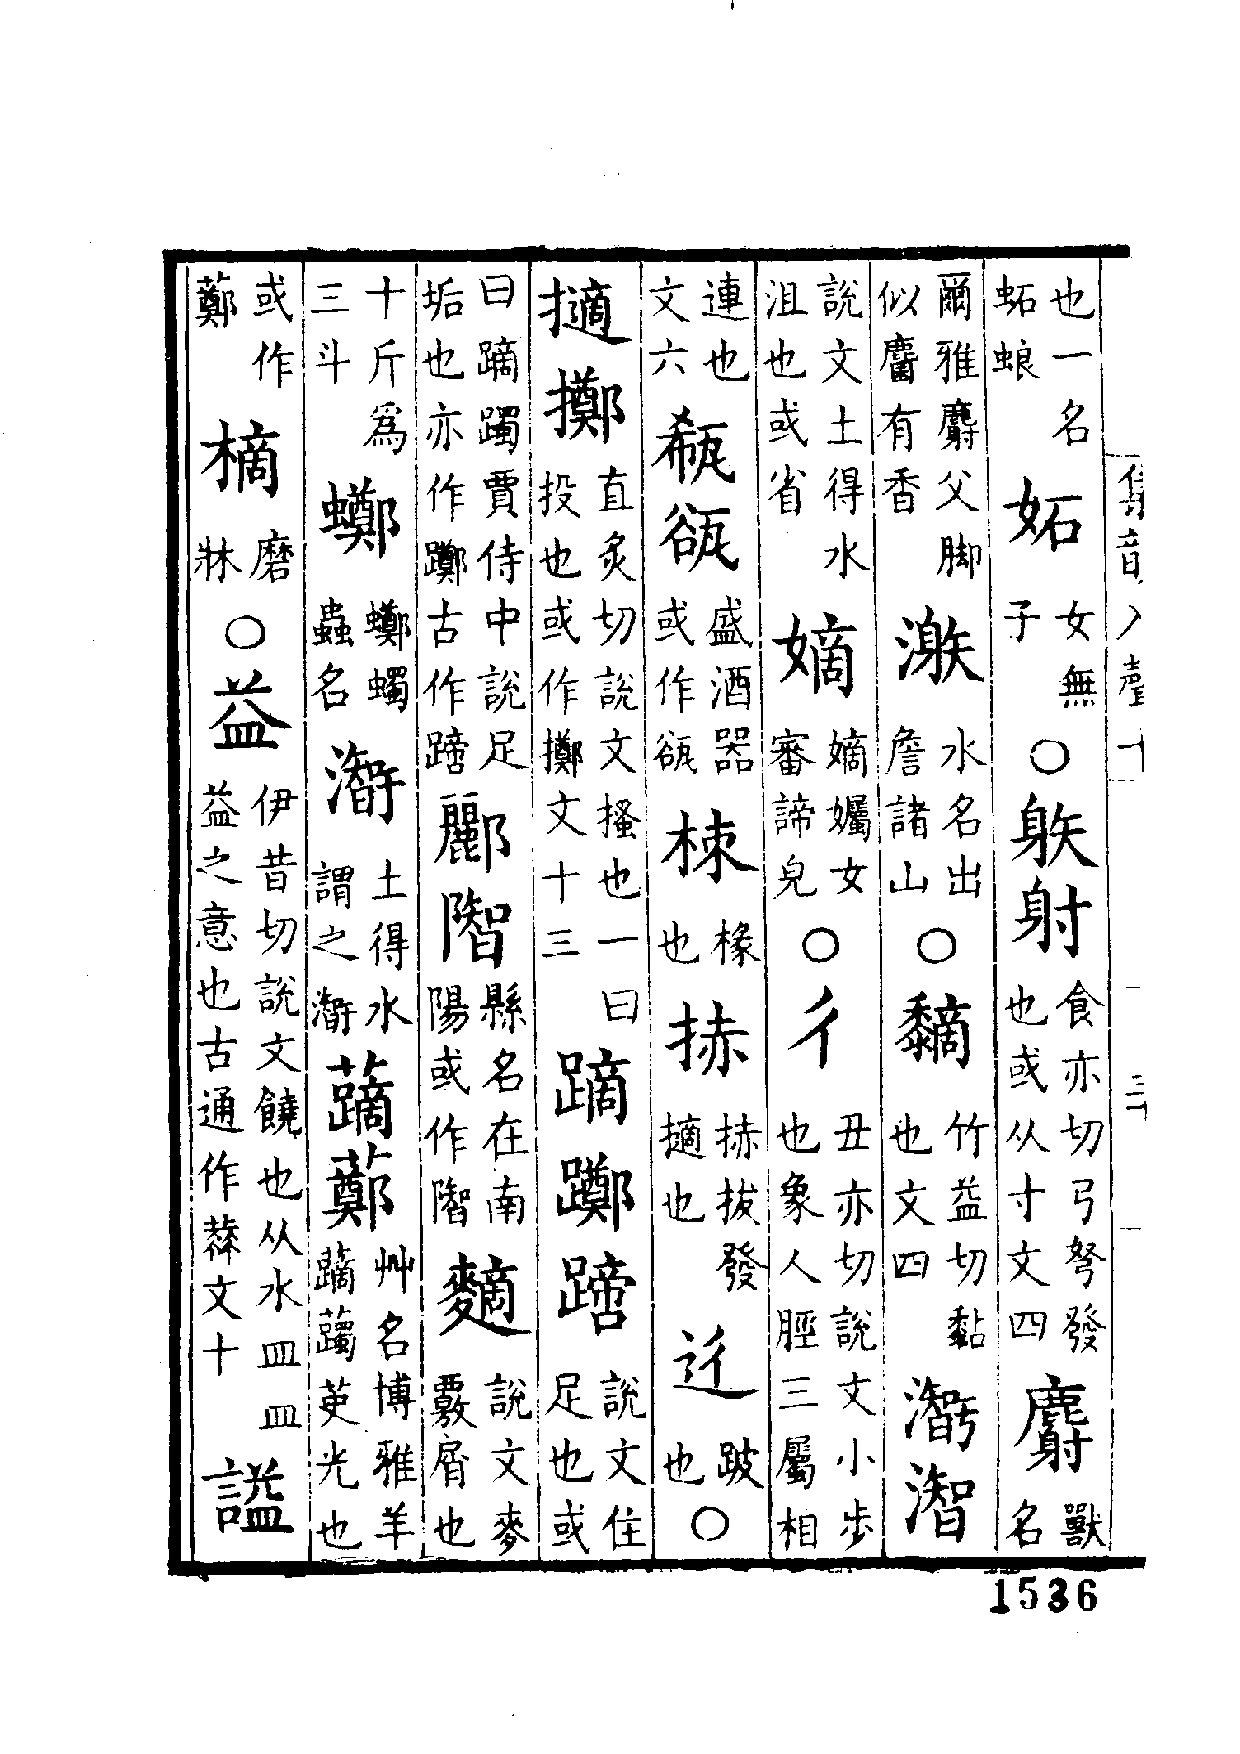 集韻入聲十 三十
也一名䖨蜋 妬 女無子 ○ 䠶射 食亦切弓弩發也或从寸文四 麝 獸名
爾雅麝父脚似麕有香 水名出詹諸山 ○ 竹益切黏也文四 潪
說文土得水沮也或省 嫡 嫡孎女審諦皃 ○ 彳 丑亦切說文小步也象人脛三屬相
連也文六 瓻 盛酒器或作 梀 椽也 捇 捇拔發擿也 跛也 ○
擿擲 直炙切說文搔也一曰投也或作擲文十三 蹢躑蹄 說文住足也或
曰蹢躅賈侍中說足垢也亦作躑古作蹄 酈 縣名在南陽或作 䵂 說文麥覈屑也
十斤爲三斗 蠋蟲名 土得水謂之 艸名博雅羊 英光也
或作 樀 磨牀 ○ 益 伊昔切說文饒也从水皿皿益之意也古通作 文十 謚
1536